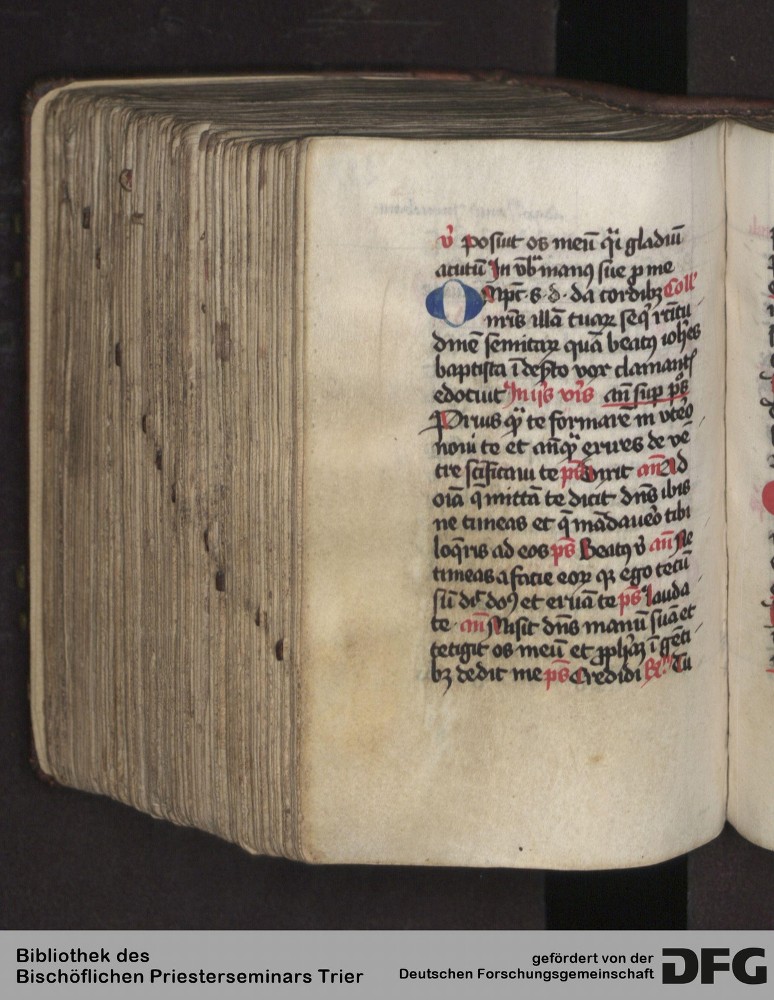 v̄ Posuit os meū q̄i gladiū
acutū In vb̄ra manꝰ sue ꝓ me
Om̄pt̄ s d da cordibꝫ Coll'
nr̄is illā tuaꝝ seq̄ rc̄itu
dinē semitaꝝ quā beatꝰ ioh̄es
baptista ī deẜto vox clamant
edocuit In ijs vr̄is an̄ sup ps̄
Priusqꝫ te formarē in vtero
noui te et an̄qꝫ exires de vē
tre scīficaui te ps̄ Dixit an̄ Ad
oīa q̄ mittā te dicit dn̄s ibis
ne timeas et q̄ mādauero tibi
loq̄ris ad eos ps̄ Beatꝰ v̄ an̄ Ne
timeas a facie eoꝝ qꝫ ego tecū
sū dic̄ dn̄s et eruā te ps̄ Lauda
te an̄ Misit dn̄s manū suā et
tetigit os meū et ꝓph̄aꝫ ī gēti
bꝫ dedit me ps̄ Credidi R̄ Tu
Bibliothek des
Bischöflichen Priesterseminars Trier
gefördert von der
Deutschen Forschungsgemeinschaft
DFG